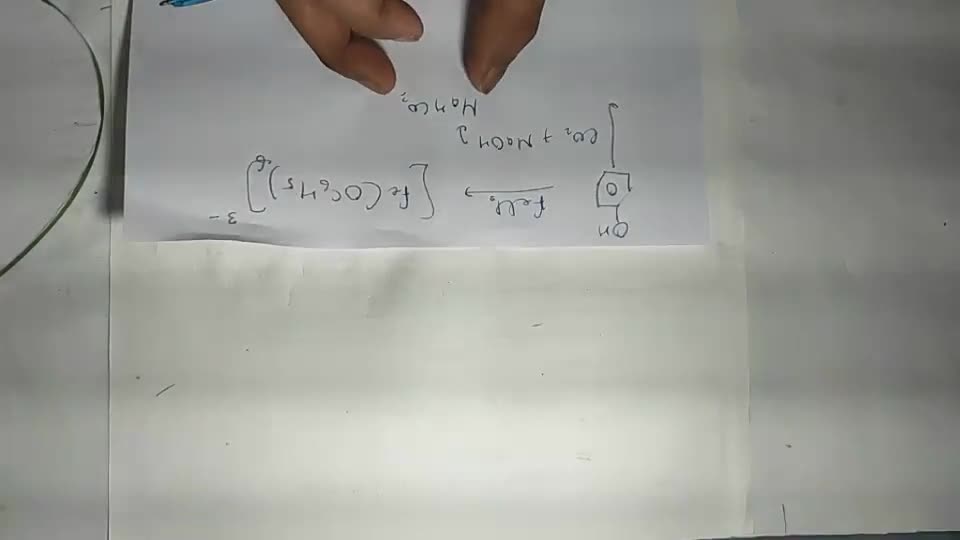 OH
FeCl₃ → [Fe(OC₆H₅)₆]³⁻
CO₂ + NaOH
NaHCO₃